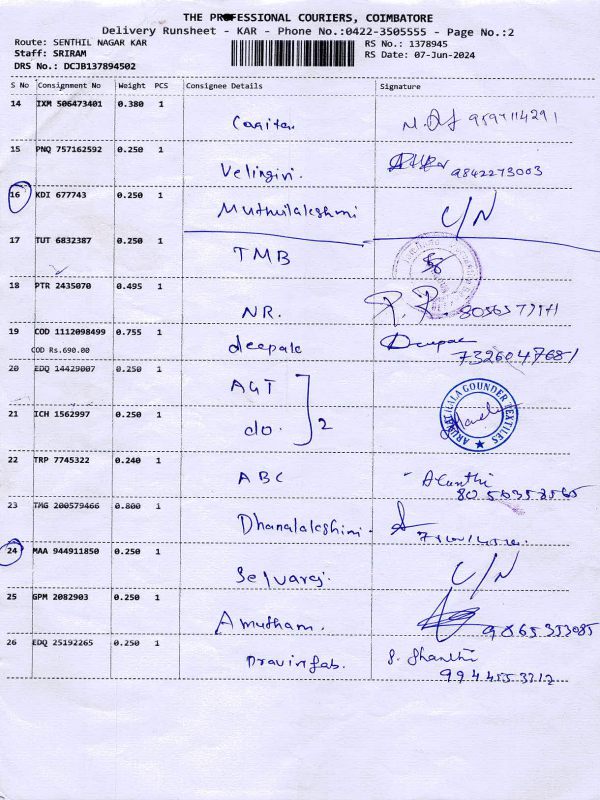 THE PROFESSIONAL COURIERS, COIMBATORE
Delivery Runsheet - KAR - Phone No.:0422-3505555 - Page No.:2
Route: SENTHIL NAGAR KAR RS No.: 1378945
Staff: SRIRAM RS Date: 07-Jun-2024
DRS No.: DCJB137894502
S No Consignment No Weight PCS Consignee Details Signature
14 IXM 506473401 0.380 1
15 PNQ 757162592 0.250 1
Velingiri. 9842273003
16 KDI 677743 0.250 1
Muthulakshmi C/N
17 TUT 6832387 0.250 1
TMB
18 PTR 2435070 0.495 1
NR.
19 COD 1112098499 0.755 1
COD Rs.690.00 deepak Deepak
7326047681
20 EDQ 14429007 0.250 1
AGT
21 ICH 1562997 0.250 1
do. 2
ARUNATHALA GOUNDER TEXTILES
22 TRP 7745322 0.240 1
ABC
23 TMG 200579466 0.800 1
Dhanalakshimi.
24 MAA 944911850 0.250 1
Selvaraj. C/N
25 GPM 2082903 0.250 1
Amutham. 9865353085
26 EDQ 25192265 0.250 1
Pravinfab. S. Shanthi